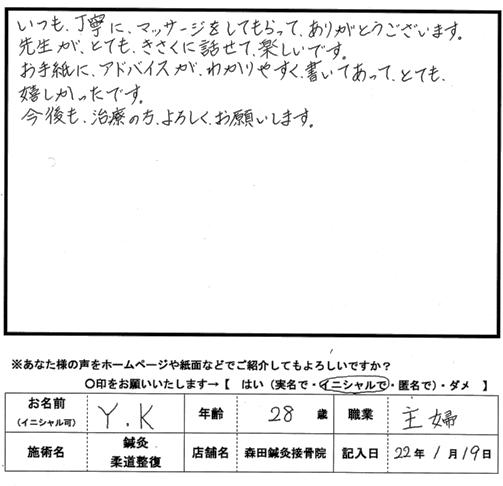 いつも、丁寧に、マッサージをしてもらって、ありがとうございます。
先生が、とても、きさくに話せて、楽しいです。
お手紙に、アドバイスが、わかりやすく、書いてあって、とても、
嬉しかったです。
今後も、治療の方、よろしく、お願いします。
※あなた様の声をホームページや紙面などでご紹介してもよろしいですか？
〇印をお願いいたします→【　はい（実名で・イニシャルで・匿名で）・ダメ　】
お名前（イニシャル可） Y.K 年齢 28 歳 職業 主婦
施術名 鍼灸 柔道整復 店舗名 森田鍼灸接骨院 記入日 22年 1月 19日